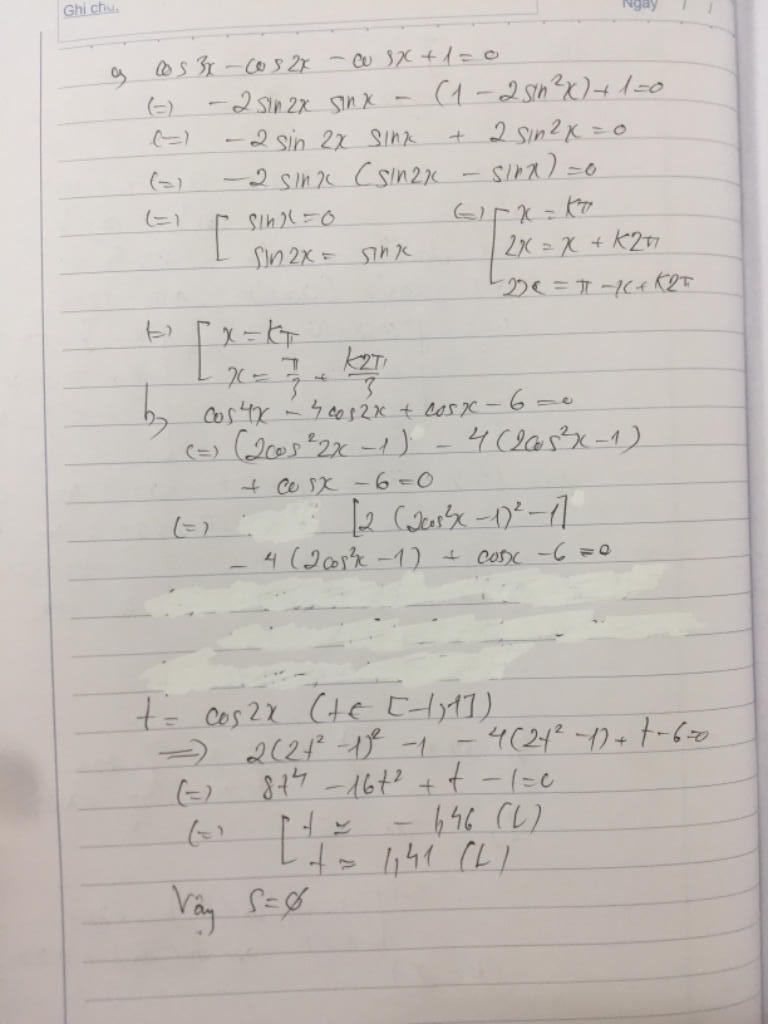 Ghi chú.
Ngày / /
a, cos3x - cos2x - cosx + 1 = 0
(=) -2 sin2x sinx - (1 - 2sin²x) + 1 = 0
(=) -2 sin 2x sinx + 2 sin²x = 0
(=) -2 sinx (sin2x - sinx) = 0
(=) [ sinx = 0 (=) [ x = kπ
sin2x = sinx 2x = x + k2π
2x = π - x + k2π
(=) [ x = kπ
x = π/3 + k2π/3
b, cos4x - 4cos2x + cosx - 6 = 0
(=) (2cos²2x - 1) - 4(2cos²x - 1)
+ cosx - 6 = 0
(=) [2 (2cos²x - 1)² - 1]
- 4(2cos²x - 1) + cosx - 6 = 0
t = cos2x (t ∈ [-1,1])
=> 2(2t² - 1)² - 1 - 4(2t² - 1) + t - 6 = 0
(=) 8t⁴ - 16t² + t - 1 = 0
(=) [ t ≈ - 1,46 (L)
t ≈ 1,41 (L)
Vậy S = ∅